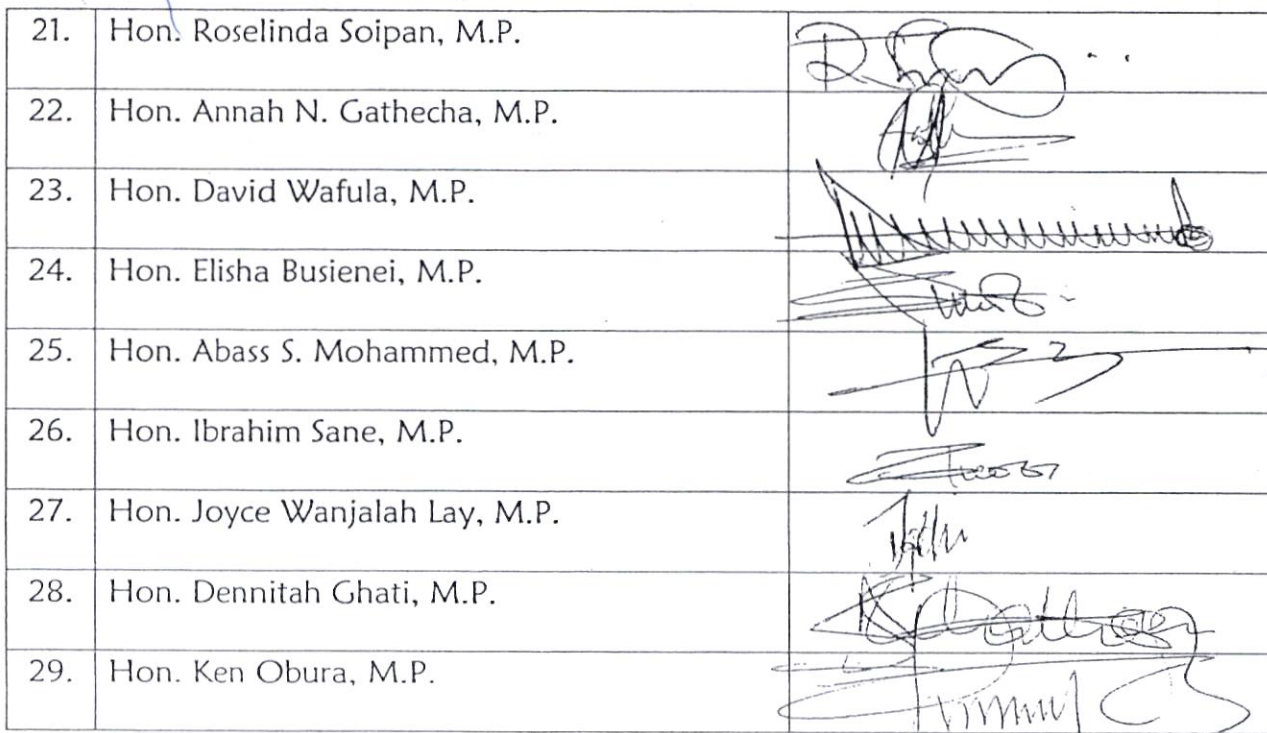 21. Hon. Roselinda Soipan, M.P.
22. Hon. Annah N. Gathecha, M.P.
23. Hon. David Wafula, M.P.
24. Hon. Elisha Busienei, M.P.
25. Hon. Abass S. Mohammed, M.P.
26. Hon. Ibrahim Sane, M.P.
27. Hon. Joyce Wanjalah Lay, M.P.
28. Hon. Dennitah Ghati, M.P.
29. Hon. Ken Obura, M.P.